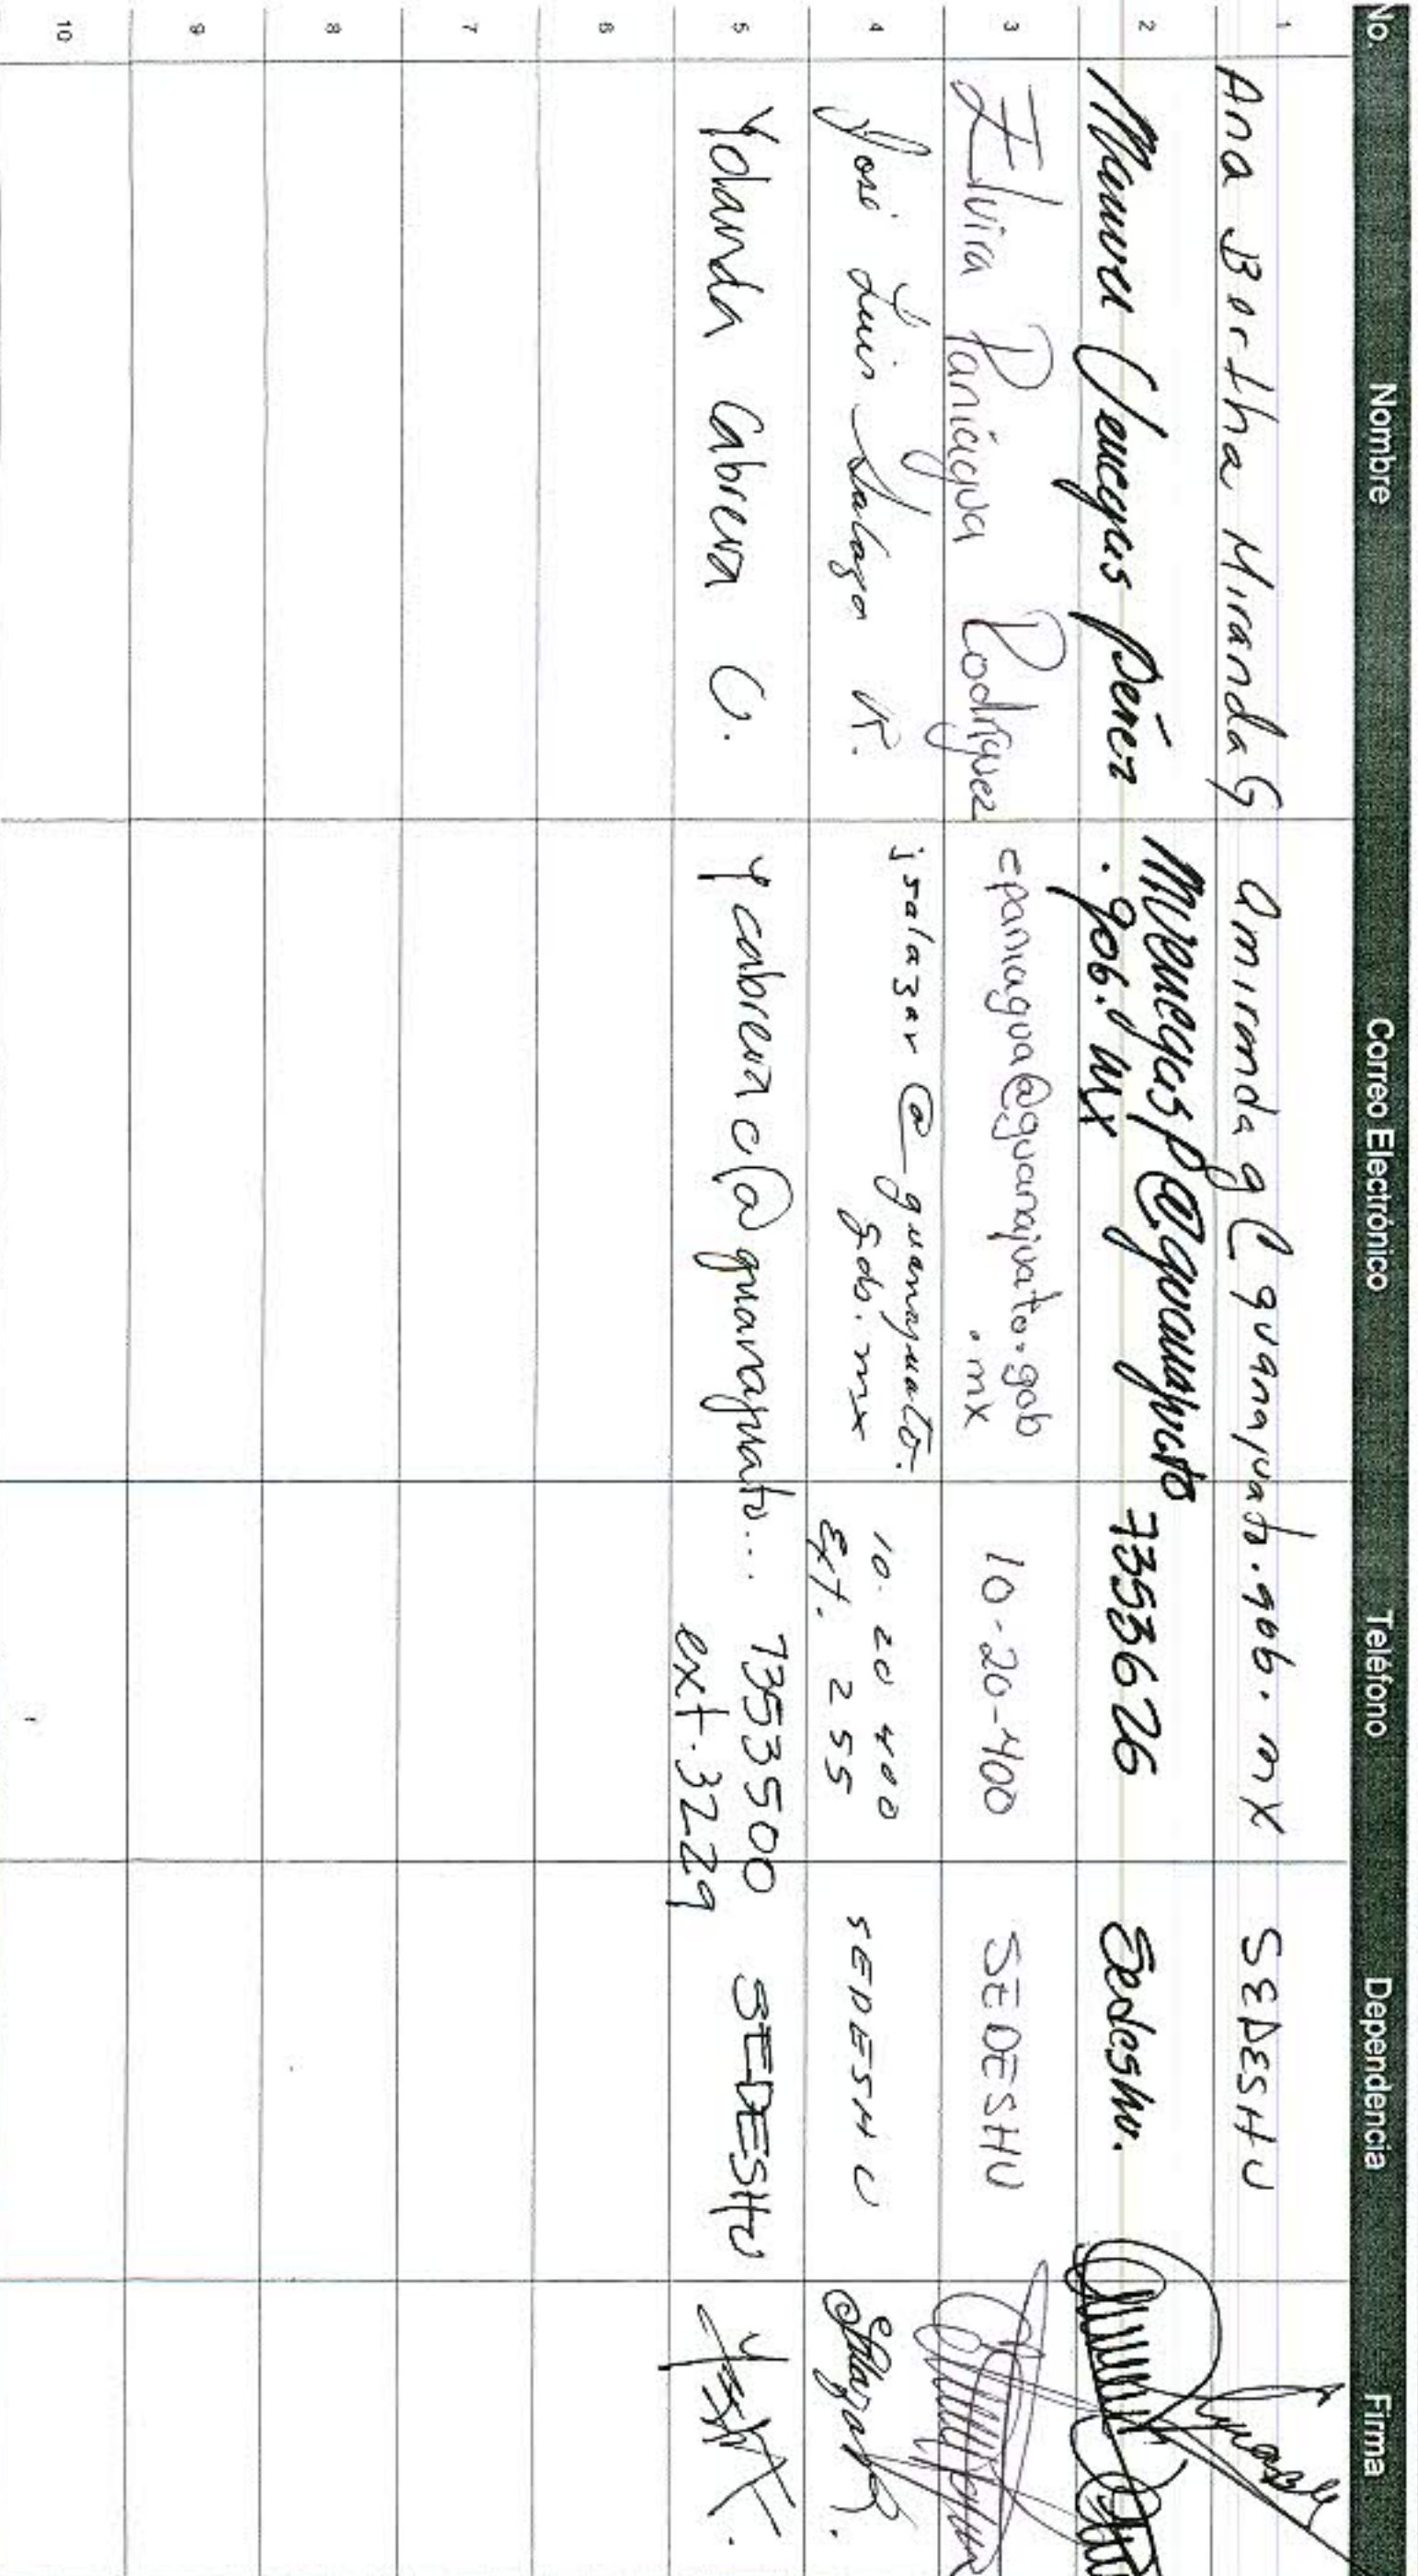 No. Nombre Correo Electrónico Teléfono Dependencia Firma
1 Ana Bertha Miranda G amirandag@guanajuato.gob.mx SEDESHU
2 Venegas Pérez mvenegasp@guanajuato 7353626 Sedeshu.
.gob.mx
3 Elvira Paniagua Rodríguez epaniagua@guanajuato.gob 10-20-400 SEDESHU
.mx
4 José Luis Salazar R. jsalazar@guanajuato. 10.20 400 SEDESHU
gob.mx Ext. 255
5 Yolanda Cabrera C. ycabrerac@guanajuato... 7353500 SEDESHU
ext.3229
6
7
8
9
10